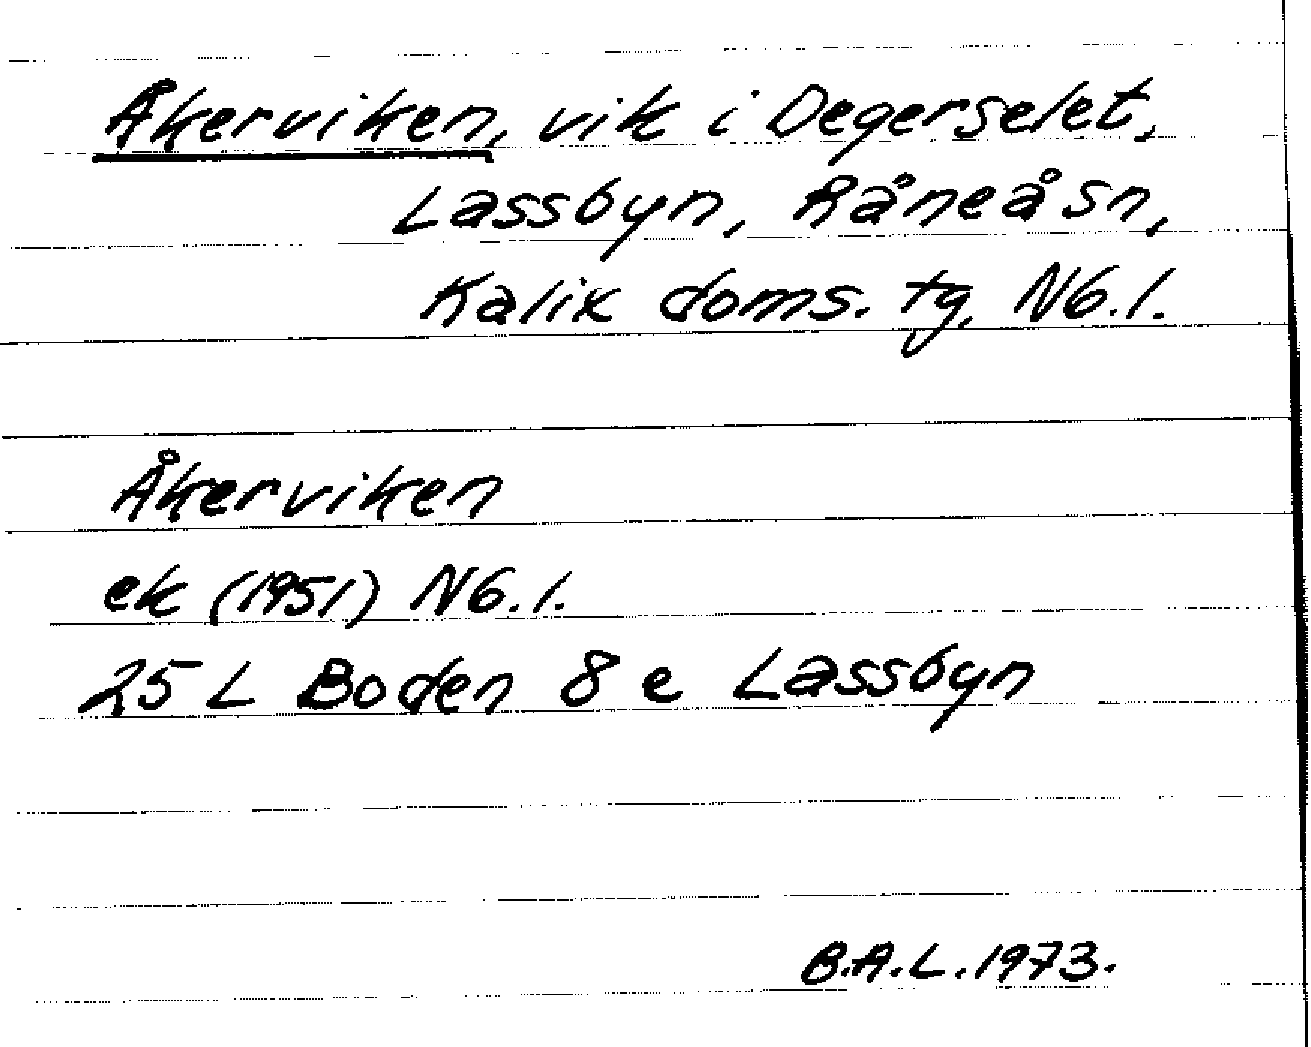 Åkerviken, vik i Degerselet,
Lassbyn, Råneå sn,
Kalix doms. tg, Nb.l.
Åkerviken
ek (1951) Nb.l.
25 L Boden 8 e Lassbyn
B.A.L. 1973.